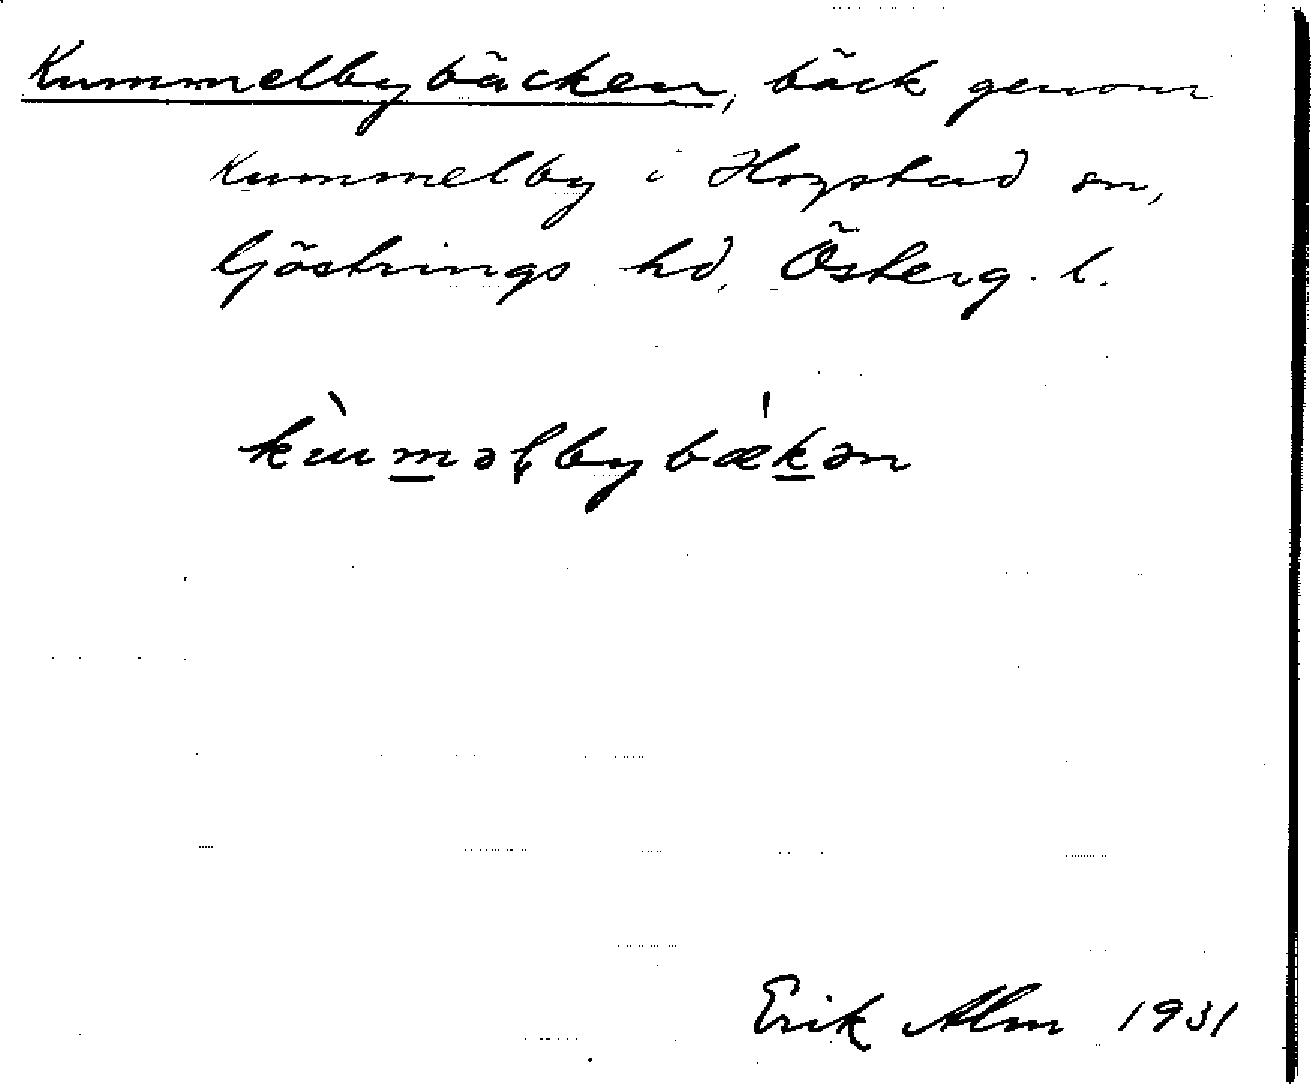 Kummelbybäcken, bäck genom
Kummelby i Hogstad sn,
Göstrings hd, Österg. l.
kùməɽbybækən
Erik Alm 1931